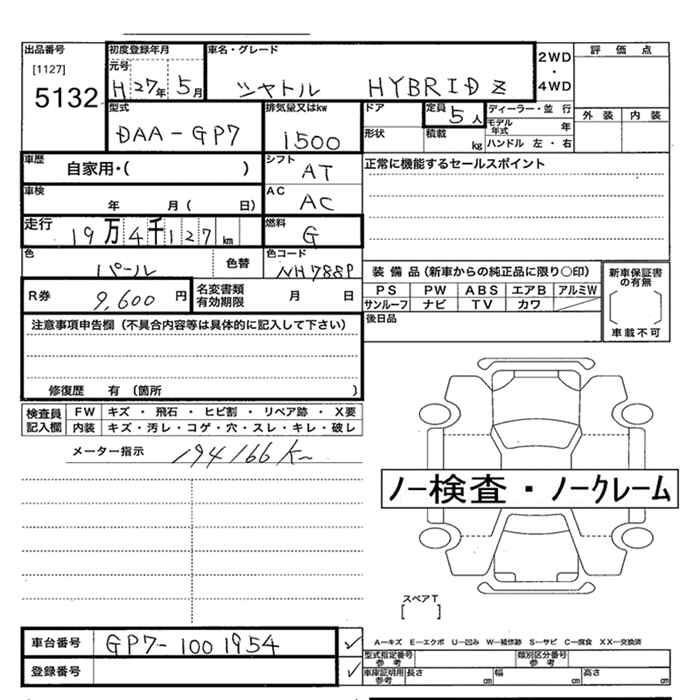 出品番号 初度登録年月 車名・グレード 2WD・4WD 評価点
[1127] 元号
5132 H 27年 5月 シャトル HYBRID Z
型式 排気量又はkw ドア 定員 5人 ディーラー・並行 外装 内装
DAA-GP7 1500 形状 積載 kg モデル年式 年
ハンドル 左・右
車歴 自家用・( ) シフト AT 正常に機能するセールスポイント
車検 年 月( 日) AC AC
走行 19万4千127km 燃料 G
色 パール 色替 色コード NH788P 装備品(新車からの純正品に限り○印) 新車保証書の有無
R券 9,600円 名変書類有効期限 月 日 PS PW ABS エアB アルミW [ ]
サンルーフ ナビ TV カワ 車載不可
注意事項申告欄(不具合内容等は具体的に記入して下さい) 後日品
修復歴 有 (箇所 )
検査員記入欄 FW キズ・飛石・ヒビ割・リペア跡・X要
内装 キズ・汚レ・コゲ・穴・スレ・キレ・破レ
メーター指示 194166K
ノー検査・ノークレーム
スペアT
[ ]
車台番号 GP7-1001954 ✓ A-キズ E-エクボ U-凹み W-補修跡 S-サビ C-腐食 XX-交換済
型式指定番号 参考 類別区分番号 参考
登録番号 ✓ 車庫証明用 参考 長さ cm 幅 cm 高さ cm